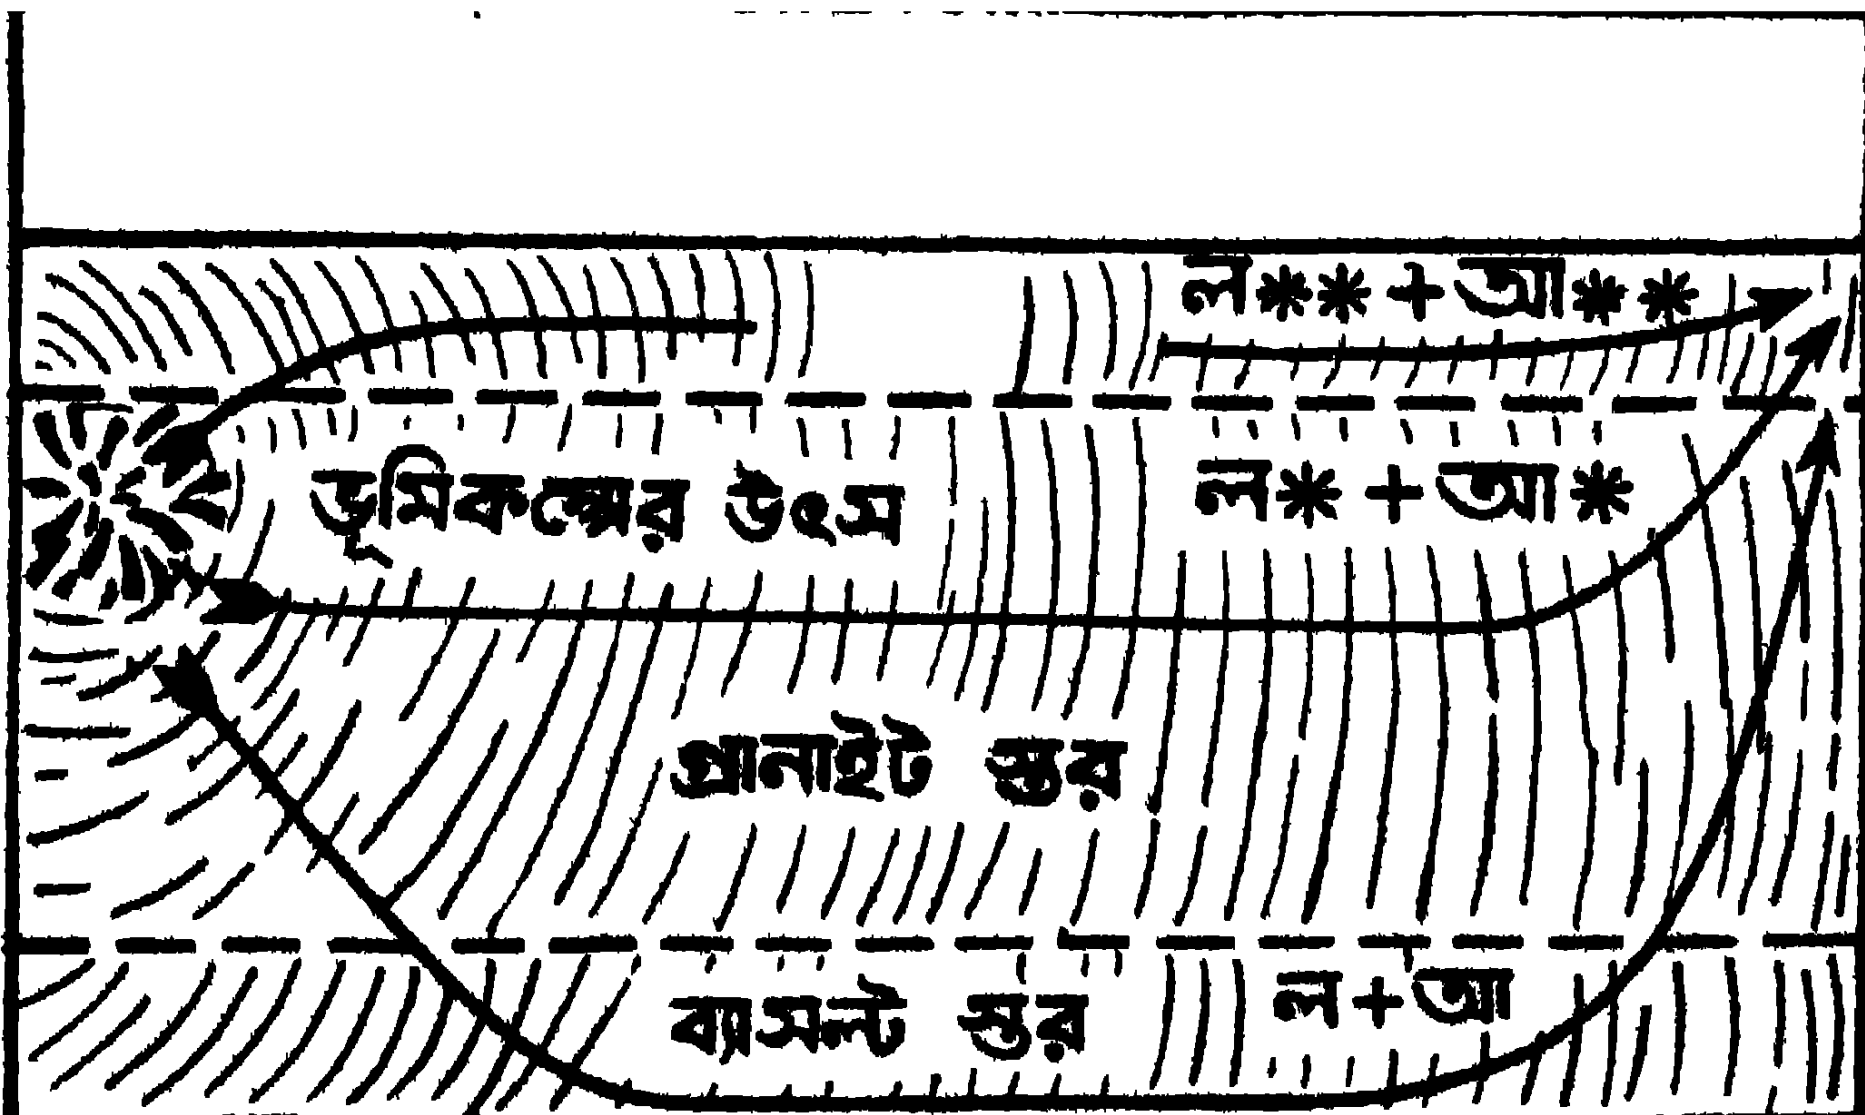 ল**+আ**
ভূমিকম্পের উৎস
ল*+আ*
গ্রানাইট স্তর
ব্যাসল্ট স্তর
ল+আ